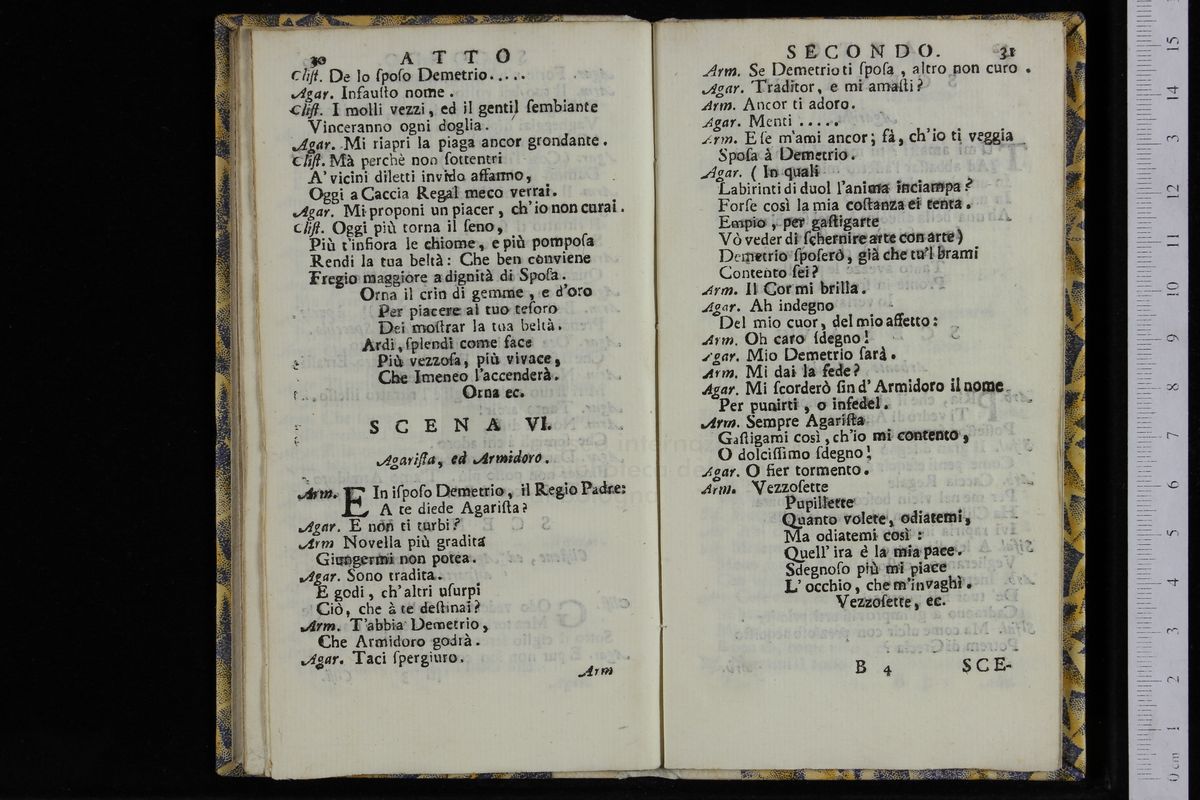 30 ATTO
Cliſt. De lo ſpoſo Demetrio.....
Agar. Infauſto nome.
Cliſt. I molli vezzi, ed il gentil ſembiante
Vinceranno ogni doglia.
Agar. Mi riapri la piaga ancor grondante.
Cliſt. Mà perchè non ſottentri
A' vicini diletti invido affanno,
Oggi a Caccia Regal meco verrai.
Agar. Mi proponi un piacer, ch'io non curai.
Cliſt. Oggi più torna il ſeno,
Più t'infiora le chiome, e più pompoſa
Rendi la tua beltà: Che ben conviene
Fregio maggiore a dignità di Spoſa.
Orna il crin di gemme, e d'oro
Per piacere al tuo teſoro
Dei moſtrar la tua beltà.
Ardi, ſplendi come face
Più vezzoſa, più vivace,
Che Imeneo l'accenderà.
Orna ec.
SCENA VI.
Agariſta, ed Armidoro.
Arm. E In iſpoſo Demetrio, il Regio Padre:
A te diede Agariſta?
Agar. E non ti turbi?
Arm Novella più gradita
Giungermi non potea.
Agar. Sono tradita.
E godi, ch'altri uſurpi
Ciò, che à te deſtinai?
Arm. T'abbia Demetrio,
Che Armidoro godrà.
Agar. Taci ſpergiuro.
Arm
SECONDO. 31
Arm. Se Demetrio ti ſpoſa, altro non curo.
Agar. Traditor, e mi amaſti?
Arm. Ancor ti adoro.
Agar. Menti.....
Arm. E ſe m'ami ancor; fà, ch'io ti veggia
Spoſa à Demetrio.
Agar. (In quali
Labirinti di duol l'anima inciampa?
Forſe così la mia coſtanza ei tenta.
Empio, per gaſtigarte
Vò veder di ſchernire arte con arte)
Demetrio ſpoſerò, già che tu'l brami
Contento ſei?
Arm. Il Cor mi brilla.
Agar. Ah indegno
Del mio cuor, del mio affetto:
Arm. Oh caro ſdegno!
Agar. Mio Demetrio ſarà.
Arm. Mi dai la fede?
Agar. Mi ſcorderò ſin d'Armidoro il nome
Per punirti, o infedel.
Arm. Sempre Agariſta
Gaſtigami così, ch'io mi contento,
O dolciſſimo ſdegno!
Agar. O fier tormento.
Arm. Vezzoſette
Pupillette
Quanto volete, odiatemi,
Ma odiatemi così:
Quell' ira è la mia pace.
Sdegnoſo più mi piace
L'occhio, che m'invaghì.
Vezzoſette, ec.
B 4 SCE-